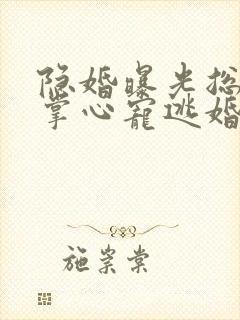 隐婚曝光总
掌心宠逃婚
施崇棠